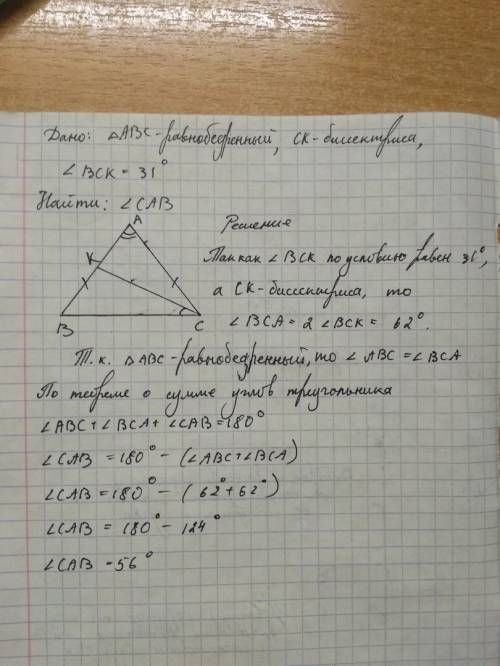 Дано: △ABC - равнобедренный, CK - биссектриса,
∠BCK = 31°
Найти: ∠CAB
A
K
B
C
Решение
Так как ∠BCK по условию равен 31°,
а CK - биссектриса, то
∠BCA = 2 ∠BCK = 62°.
Т.к. △ABC - равнобедренный, то ∠ABC = ∠BCA
По теореме о сумме углов треугольника
∠ABC + ∠BCA + ∠CAB = 180°
∠CAB = 180° - (∠ABC + ∠BCA)
∠CAB = 180° - (62° + 62°)
∠CAB = 180° - 124°
∠CAB = 56°